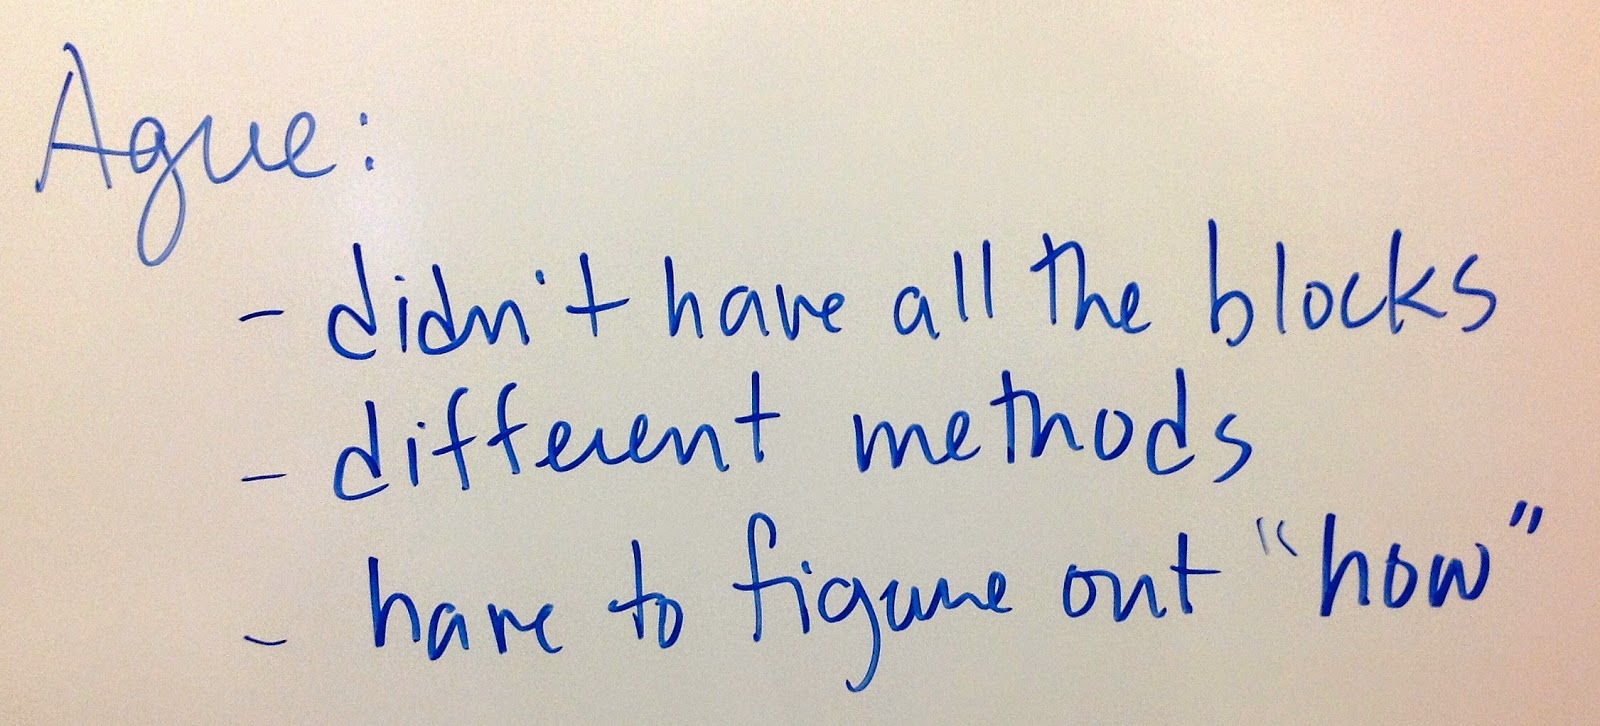 Ague:
- didn't have all the blocks
- different methods
- have to figure out "how"